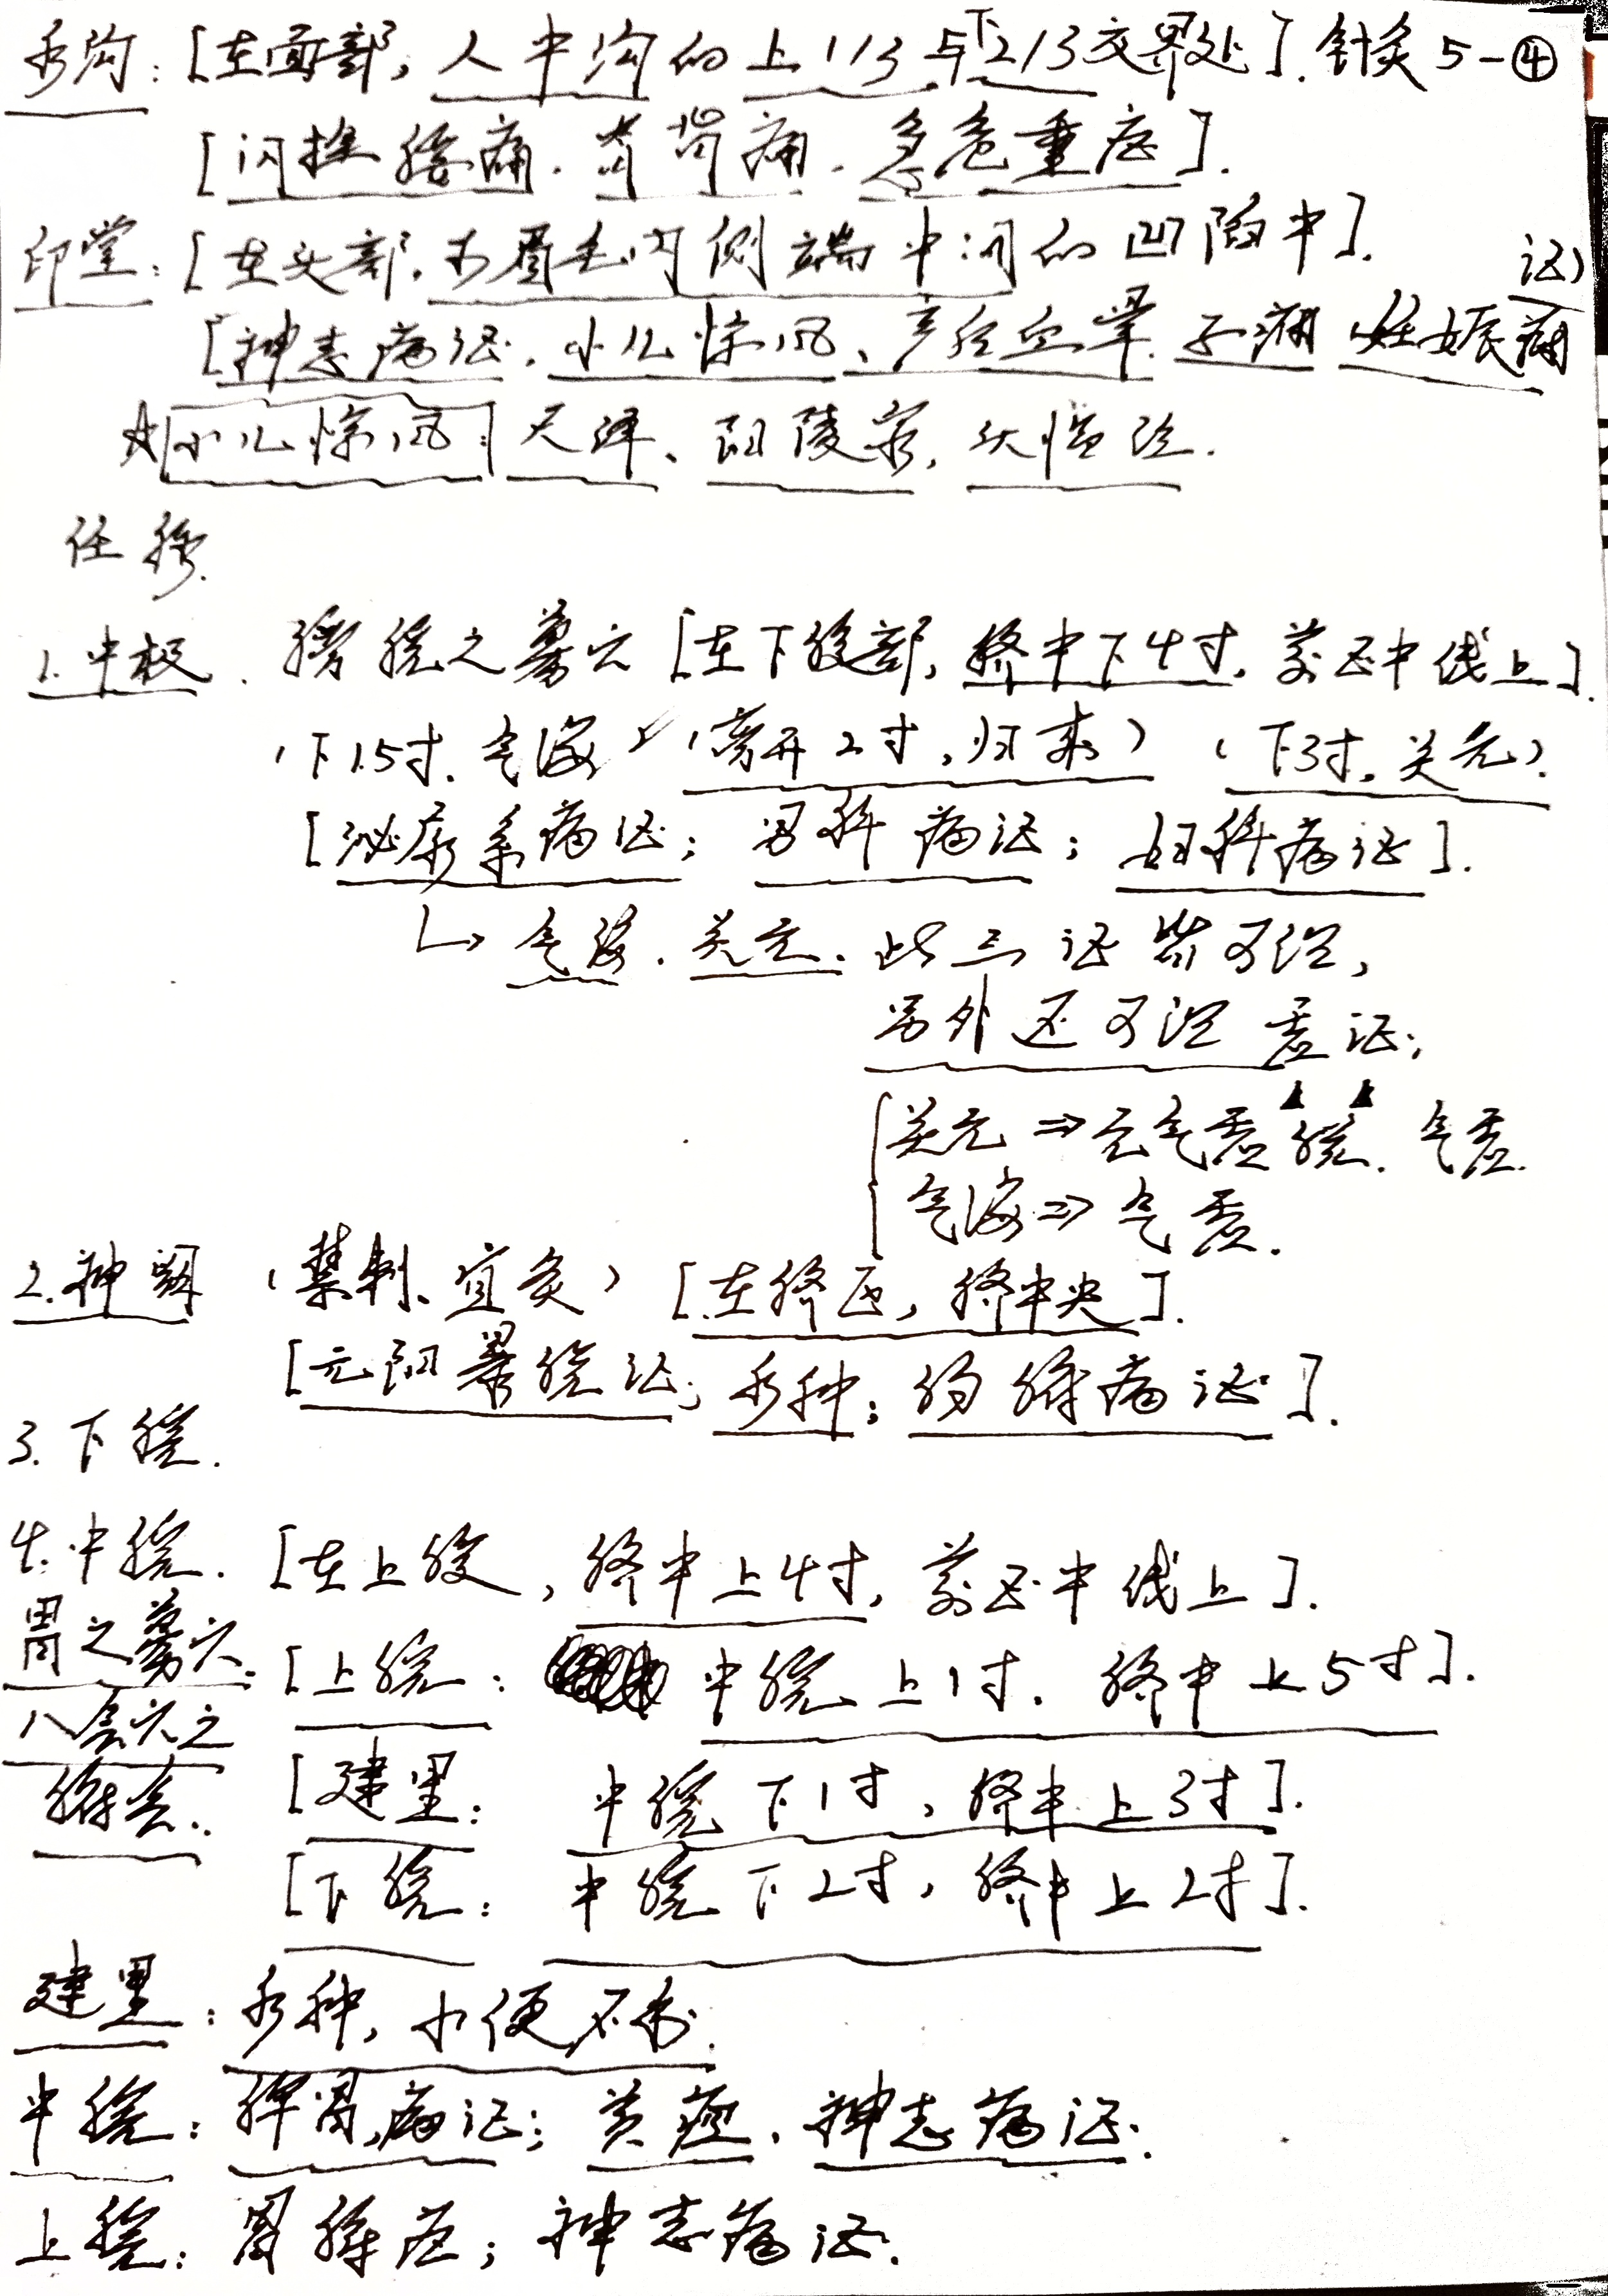 水沟：[在面部，人中沟的上1/3与下2/3交界处]. 针灸5-④
[闪挫腰痛.脊背痛.急危重症].
印堂：[在头部，两眉毛内侧端中间的凹陷中].
[神志病证，小儿惊风、产后血晕.子痫(妊娠痫证)
☆小儿惊风：尺泽、阳陵泉，
任脉.
1.中极. 膀胱之募穴[在下腹部，脐中下4寸，前正中线上].
(下1.5寸.气海)(旁开2寸，归来)(下3寸.关元).
[泌尿系病证；男科病证；妇科病证].
↳气海.关元.此三证皆可治，
另外还可治虚证；
关元⇒元气虚脱.气虚.
气海⇒气虚.
2.神阙(禁刺、宜灸)[在脐区，脐中央].
[元阳暴脱证；水肿；肠腑病证].
3.下脘.
4.中脘.[在上腹，脐中上4寸，前正中线上].
胃之募穴：[上脘：中脘上1寸.脐中上5寸].
八会穴之
腑会.. [建里：中脘下1寸，脐中上3寸].
[下脘：中脘下2寸，脐中上2寸].
建里：水肿，小便不利.
中脘：脾胃病证；黄疸.神志病证.
上脘：胃腑症；神志病证.